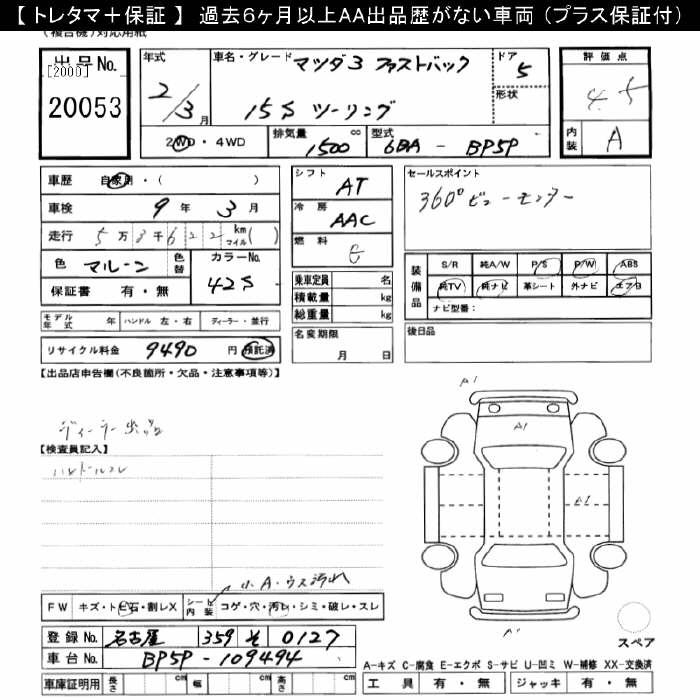 【トレタマ＋保証】 過去６ヶ月以上ＡＡ出品歴がない車両（プラス保証付）
(複合機)対応用紙
出品No.
[2000]
20053
年式
2/3月
車名・グレード マツダ3 ファストバック
15S ツーリング
ドア 5
形状
2WD・4WD
排気量 1500 cc
型式 6BA - BP5P
評価点
4.5
内装 A
車歴 自家用・( )
車検 9年 3月
走行 5万3千622 km マイル( )
色 マルーン 色替
カラーNo. 42S
保証書 有・無
モデル年式 年 ハンドル 左・右 ディーラー・並行
リサイクル料金 9490 円 預託済
シフト AT
冷房 AAC
燃料 G
乗車定員 名
積載量 kg
総重量 kg
名変期限
月 日
セールスポイント
360°ビューモニター
装備品
S/R 純A/W P/S P/W ABS
純TV 純ナビ 革シート 外ナビ エアB
ナビ型番:
後日品
【出品店申告欄(不良箇所・欠品・注意事項等)】
ディーラー出品
【検査員記入】
ハンドルスレ
小A・ウス汚れ
A1
A1
A1
A
FW キズ・トビ石・割レX
シート内装 コゲ・穴・汚レ・シミ・破レ・スレ
登録No. 名古屋 359 そ 0127
車台No. BP5P-109494
車庫証明用 長さ cm 幅 cm 高さ cm
スペア
A-キズ C-腐食 E-エクボ S-サビ U-凹ミ W-補修 XX-交換済
工具 有・無 ジャッキ 有・無